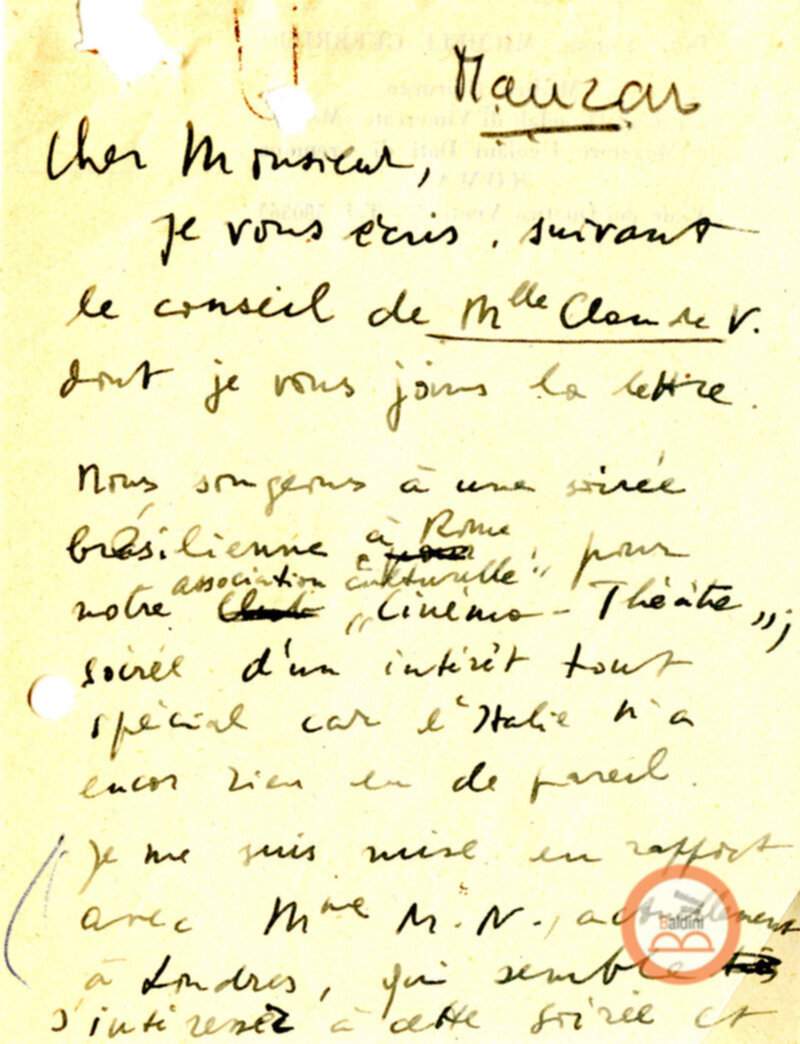 Mauzar
Cher Monsieur,
je vous écris, suivant
le conseil de Mlle Claude V.
dont je vous joins la lettre.
Nous songeons à une soirée
brésilienne à Rome pour
notre association culturelle
„Cinéma - Théâtre„;
soirée d'un intérêt tout
spécial car l'Italie n'a
encor rien eu de pareil.
Je me suis mise en rapport
avec Mme M. N., actuellement
à Londres, qui semble
s'intéresser à cette soirée et
Baldini